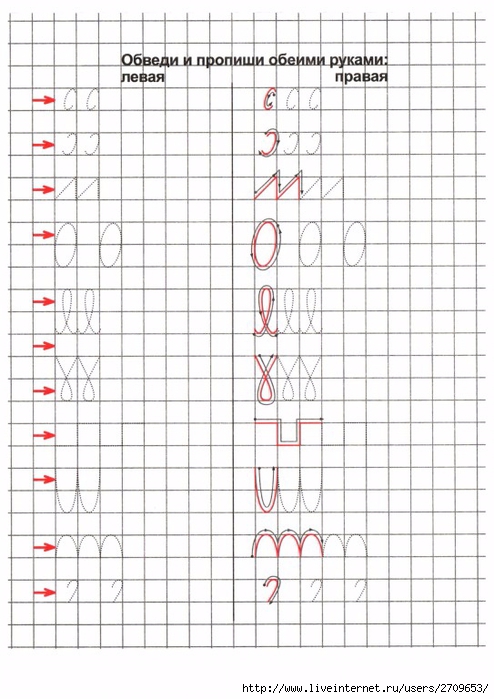 Обведи и пропиши обеими руками:
левая правая
http://www.liveinternet.ru/users/2709653/